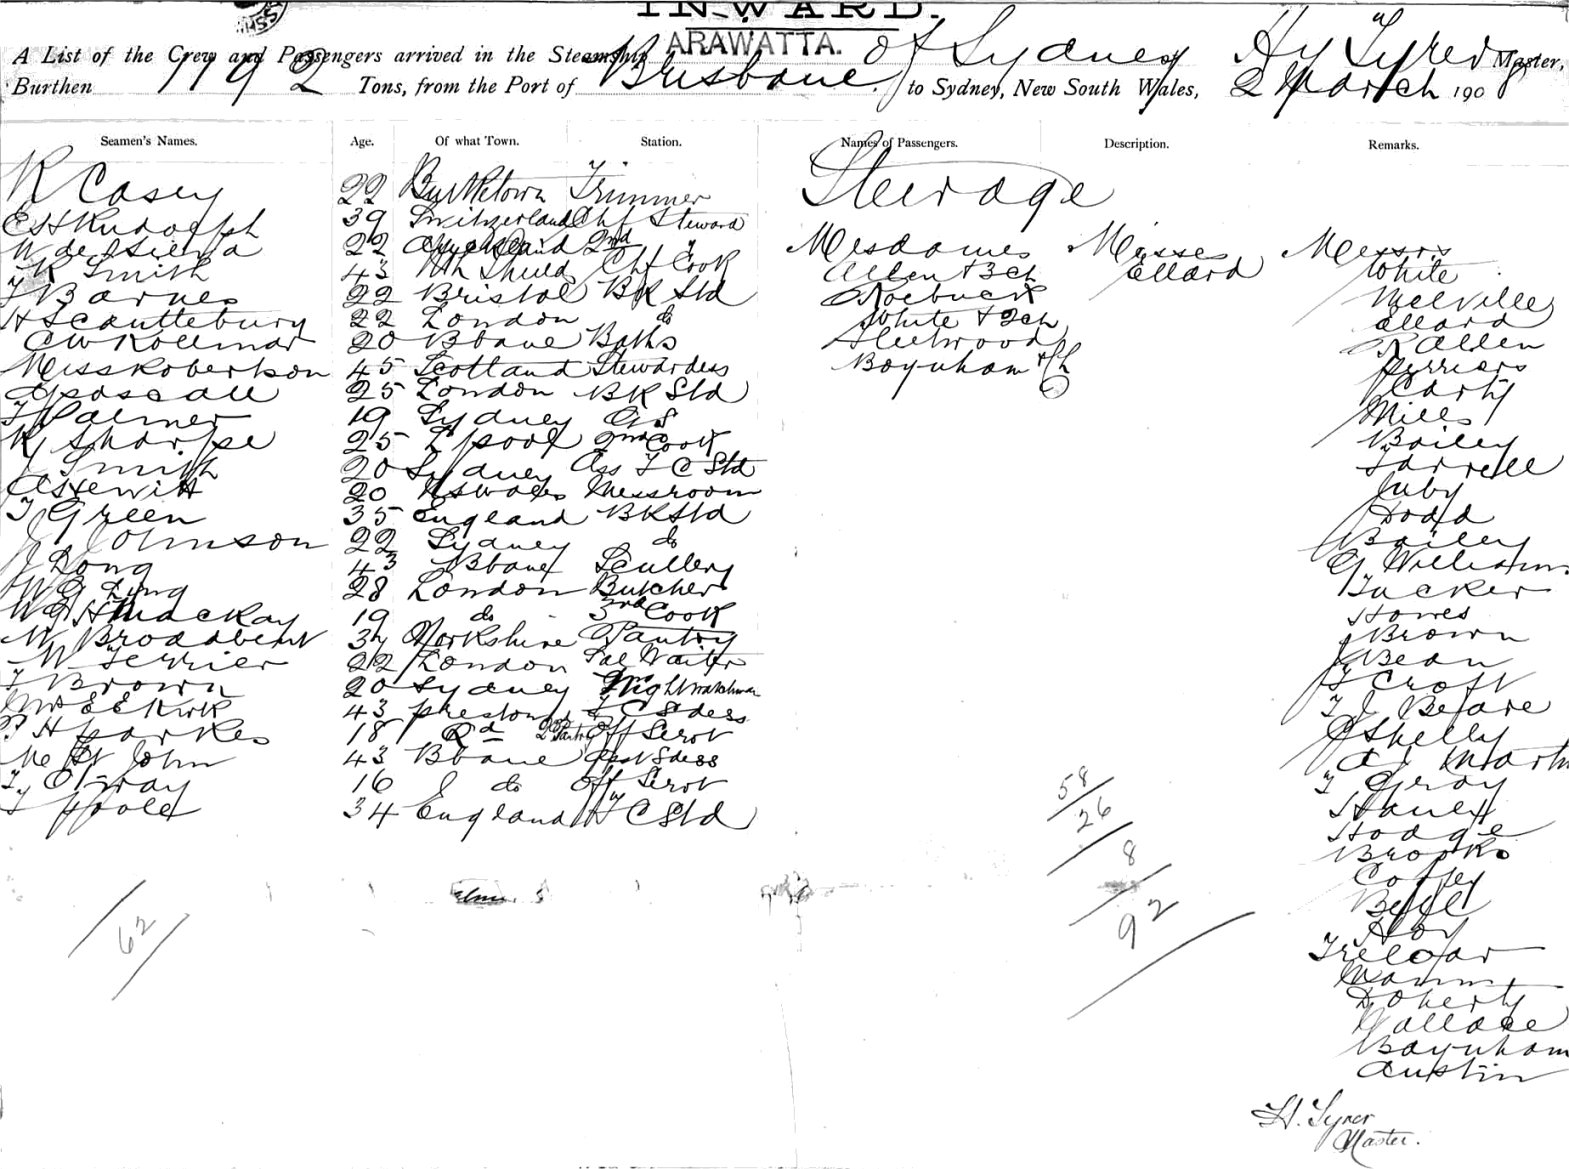 INWARD.
A List of the Crew and Passengers arrived in the Steamship ARAWATTA. of Sydney Hy Tyrer Master,
Burthen 1192 Tons, from the Port of Brisbane to Sydney, New South Wales, 2 March 1908
Seamen's Names. Age. Of what Town. Station. Names of Passengers. Description. Remarks.
R Casey 22 Burketown Trimmer
E H Rudolph 39 Switzerland Chf Steward
W de Silva 22 Auckland 2nd "
F R Smith 43 Nth Shield Chf Cook
F Barnes 22 Bristol BK Std
22 London do
C W Kollmar 20 Bbane Baths
Miss Robertson 45 Scotland Stewardess
25 London BK Std
F Palmer 19 Sydney G S
R Sharpe 25 L'pool 2nd Cook
J Smith 20 Sydney Ass F C Std
A Hewitt 20 N S Wales Messroom
T Green 35 England BK Std
J Johnson 22 Sydney do
J Dong 43 Bbane Scullery
W G Ling 28 London Butcher
W G H Mackay 19 do 3rd Cook
W Broadbent 37 Yorkshire Pantry
W Terrier 22 London Sal Waiter
F Brown 20 Sydney Nightwatchman
Mrs E E Kirk 43 Preston F C Stdess
P H Parkes 18 Qd 2nd Pantry Off Servt
Me St John 43 Bbane Stdess
T Otway 16 do Off Servt
F Poole 34 England F C Std
62
Steerage
Mesdames
Allen + 3ch
Roebuck
White + 2ch
Fleetwood
Boynham + ch
Misses
Ellard
58
26
8
92
Messrs
White
Melville
Ellard
R Allen
Perriers
Carty
Mills
Bailey
Farrell
Juby
Dodd
Bailey
G Williams
Tucker
Howes
J Brown
J Bean
F Croft
F J Befare
C Shelly
A J Martin
F Gray
Haney
Hodge
Brooks
Coffey
Bell
Hoy
Treloar
Mann
Doherty
Wallace
Baynham
Austin
H. Tyrer
Master.